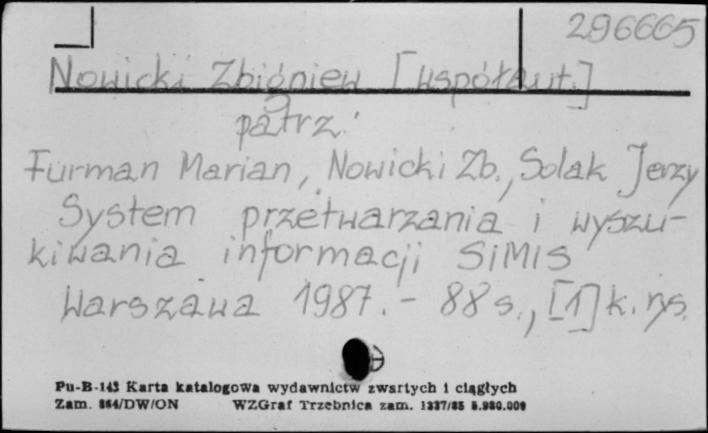 296665
Nowicki Zbigniew [współaut.]
patrz:
Furman Marian, Nowicki Zb., Solak Jerzy
System przetwarzania i wyszu-
kiwania informacji SIMIS
Warszawa 1987. - 88 s., [1] k. rys.
Pu-B-143 Karta katalogowa wydawnictw zwartych i ciągłych
Zam. 864/DW/ON WZGraf Trzebnica zam. 1337/85 5.980.000